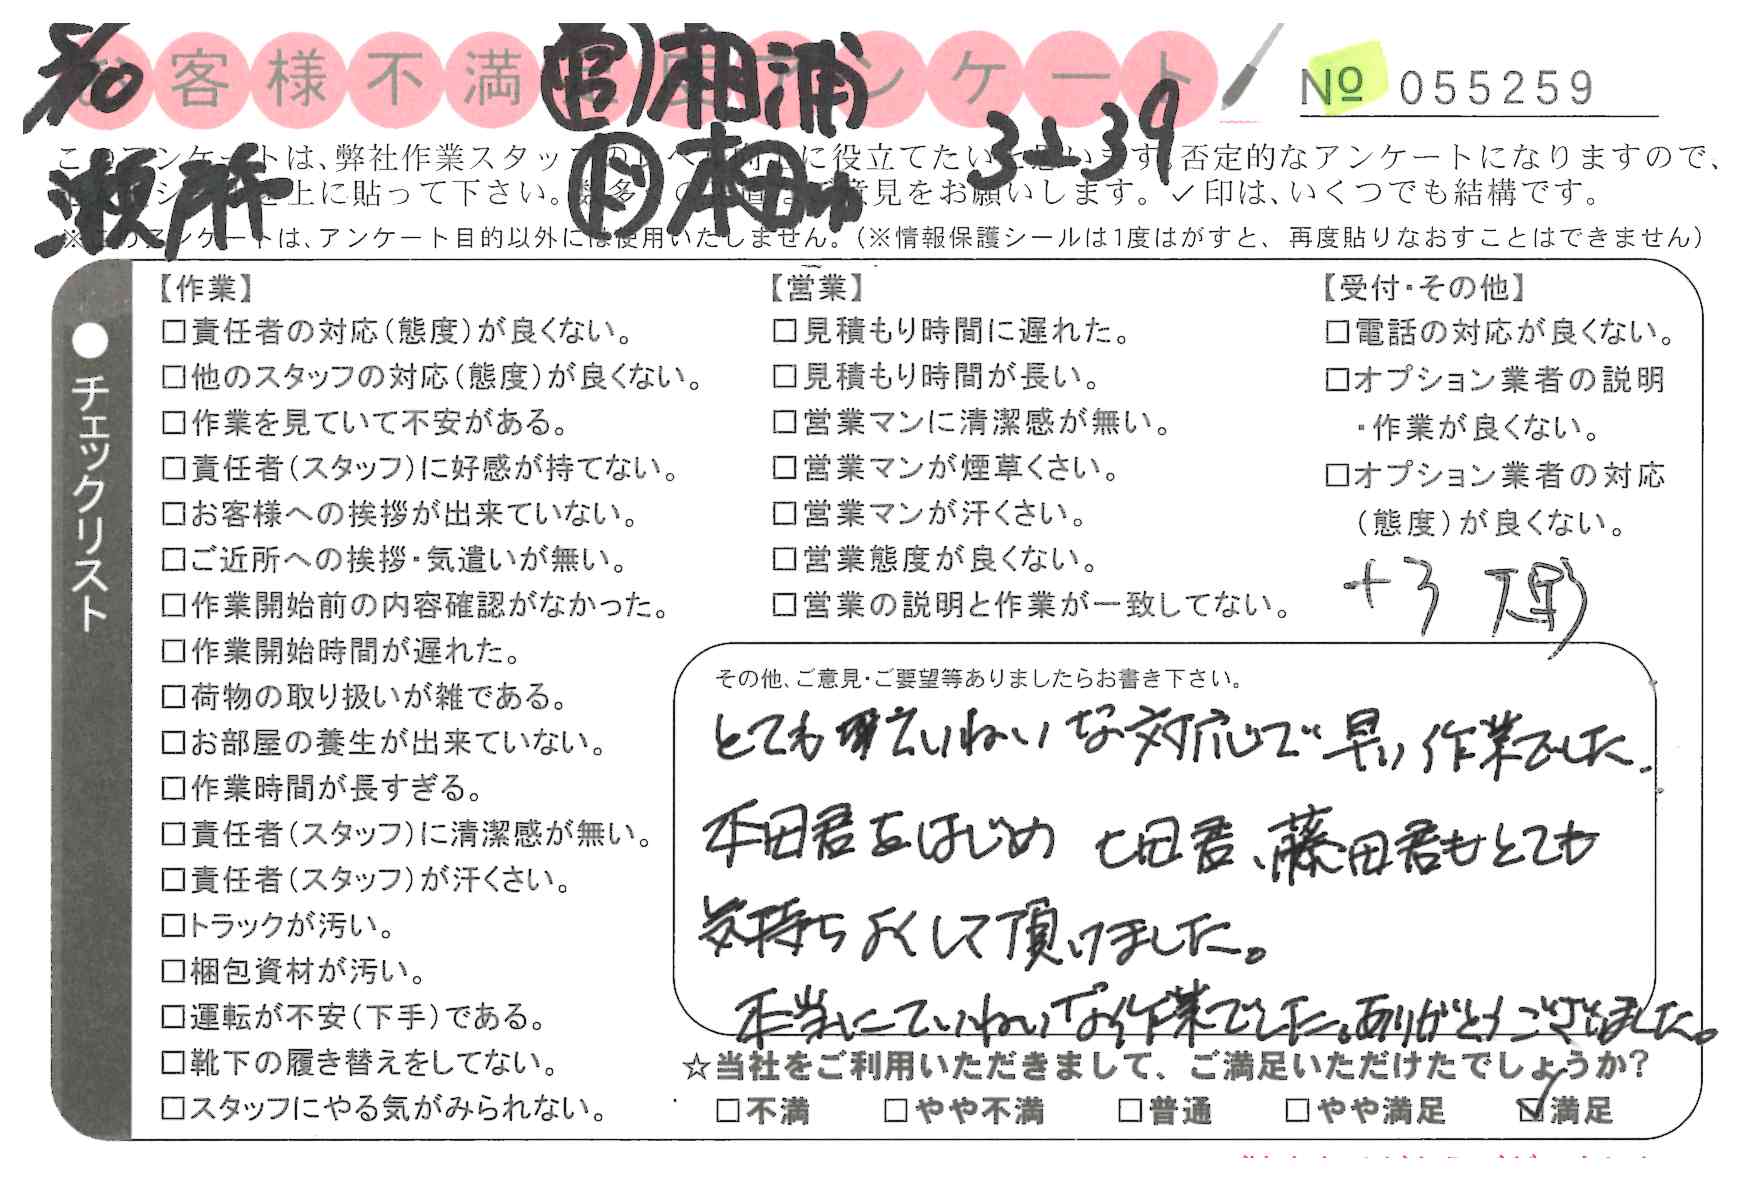 5/10
お客様不満足度アンケート
㊂相浦
№ 055259
瀬
ド 本田
3-39
このアンケートは、弊社作業スタッフのレベル向上に役立てたいと思います。否定的なアンケートになりますので、
上に貼って下さい。数多くのご意見をお願いします。✓印は、いくつでも結構です。
※このアンケートは、アンケート目的以外には使用いたしません。(※情報保護シールは1度はがすと、再度貼りなおすことはできません)
●チェックリスト
【作業】
□責任者の対応(態度)が良くない。
□他のスタッフの対応(態度)が良くない。
□作業を見ていて不安がある。
□責任者(スタッフ)に好感が持てない。
□お客様への挨拶が出来ていない。
□ご近所への挨拶・気遣いが無い。
□作業開始前の内容確認がなかった。
□作業開始時間が遅れた。
□荷物の取り扱いが雑である。
□お部屋の養生が出来ていない。
□作業時間が長すぎる。
□責任者(スタッフ)に清潔感が無い。
□責任者(スタッフ)が汗くさい。
□トラックが汚い。
□梱包資材が汚い。
□運転が不安(下手)である。
□靴下の履き替えをしてない。
□スタッフにやる気がみられない。
【営業】
□見積もり時間に遅れた。
□見積もり時間が長い。
□営業マンに清潔感が無い。
□営業マンが煙草くさい。
□営業マンが汗くさい。
□営業態度が良くない。
□営業の説明と作業が一致してない。
【受付・その他】
□電話の対応が良くない。
□オプション業者の説明
・作業が良くない。
□オプション業者の対応
(態度)が良くない。
+3
その他、ご意見・ご要望等ありましたらお書き下さい。
とても ていねいな対応で 早い作業でした.
本田君をはじめ 七田君、藤田君もとても
気持ちよくして頂けました。
本当にていねいな作業でした。ありがとうございました。
☆当社をご利用いただきまして、ご満足いただけたでしょうか?
□不満 □やや不満 □普通 □やや満足 ☑満足